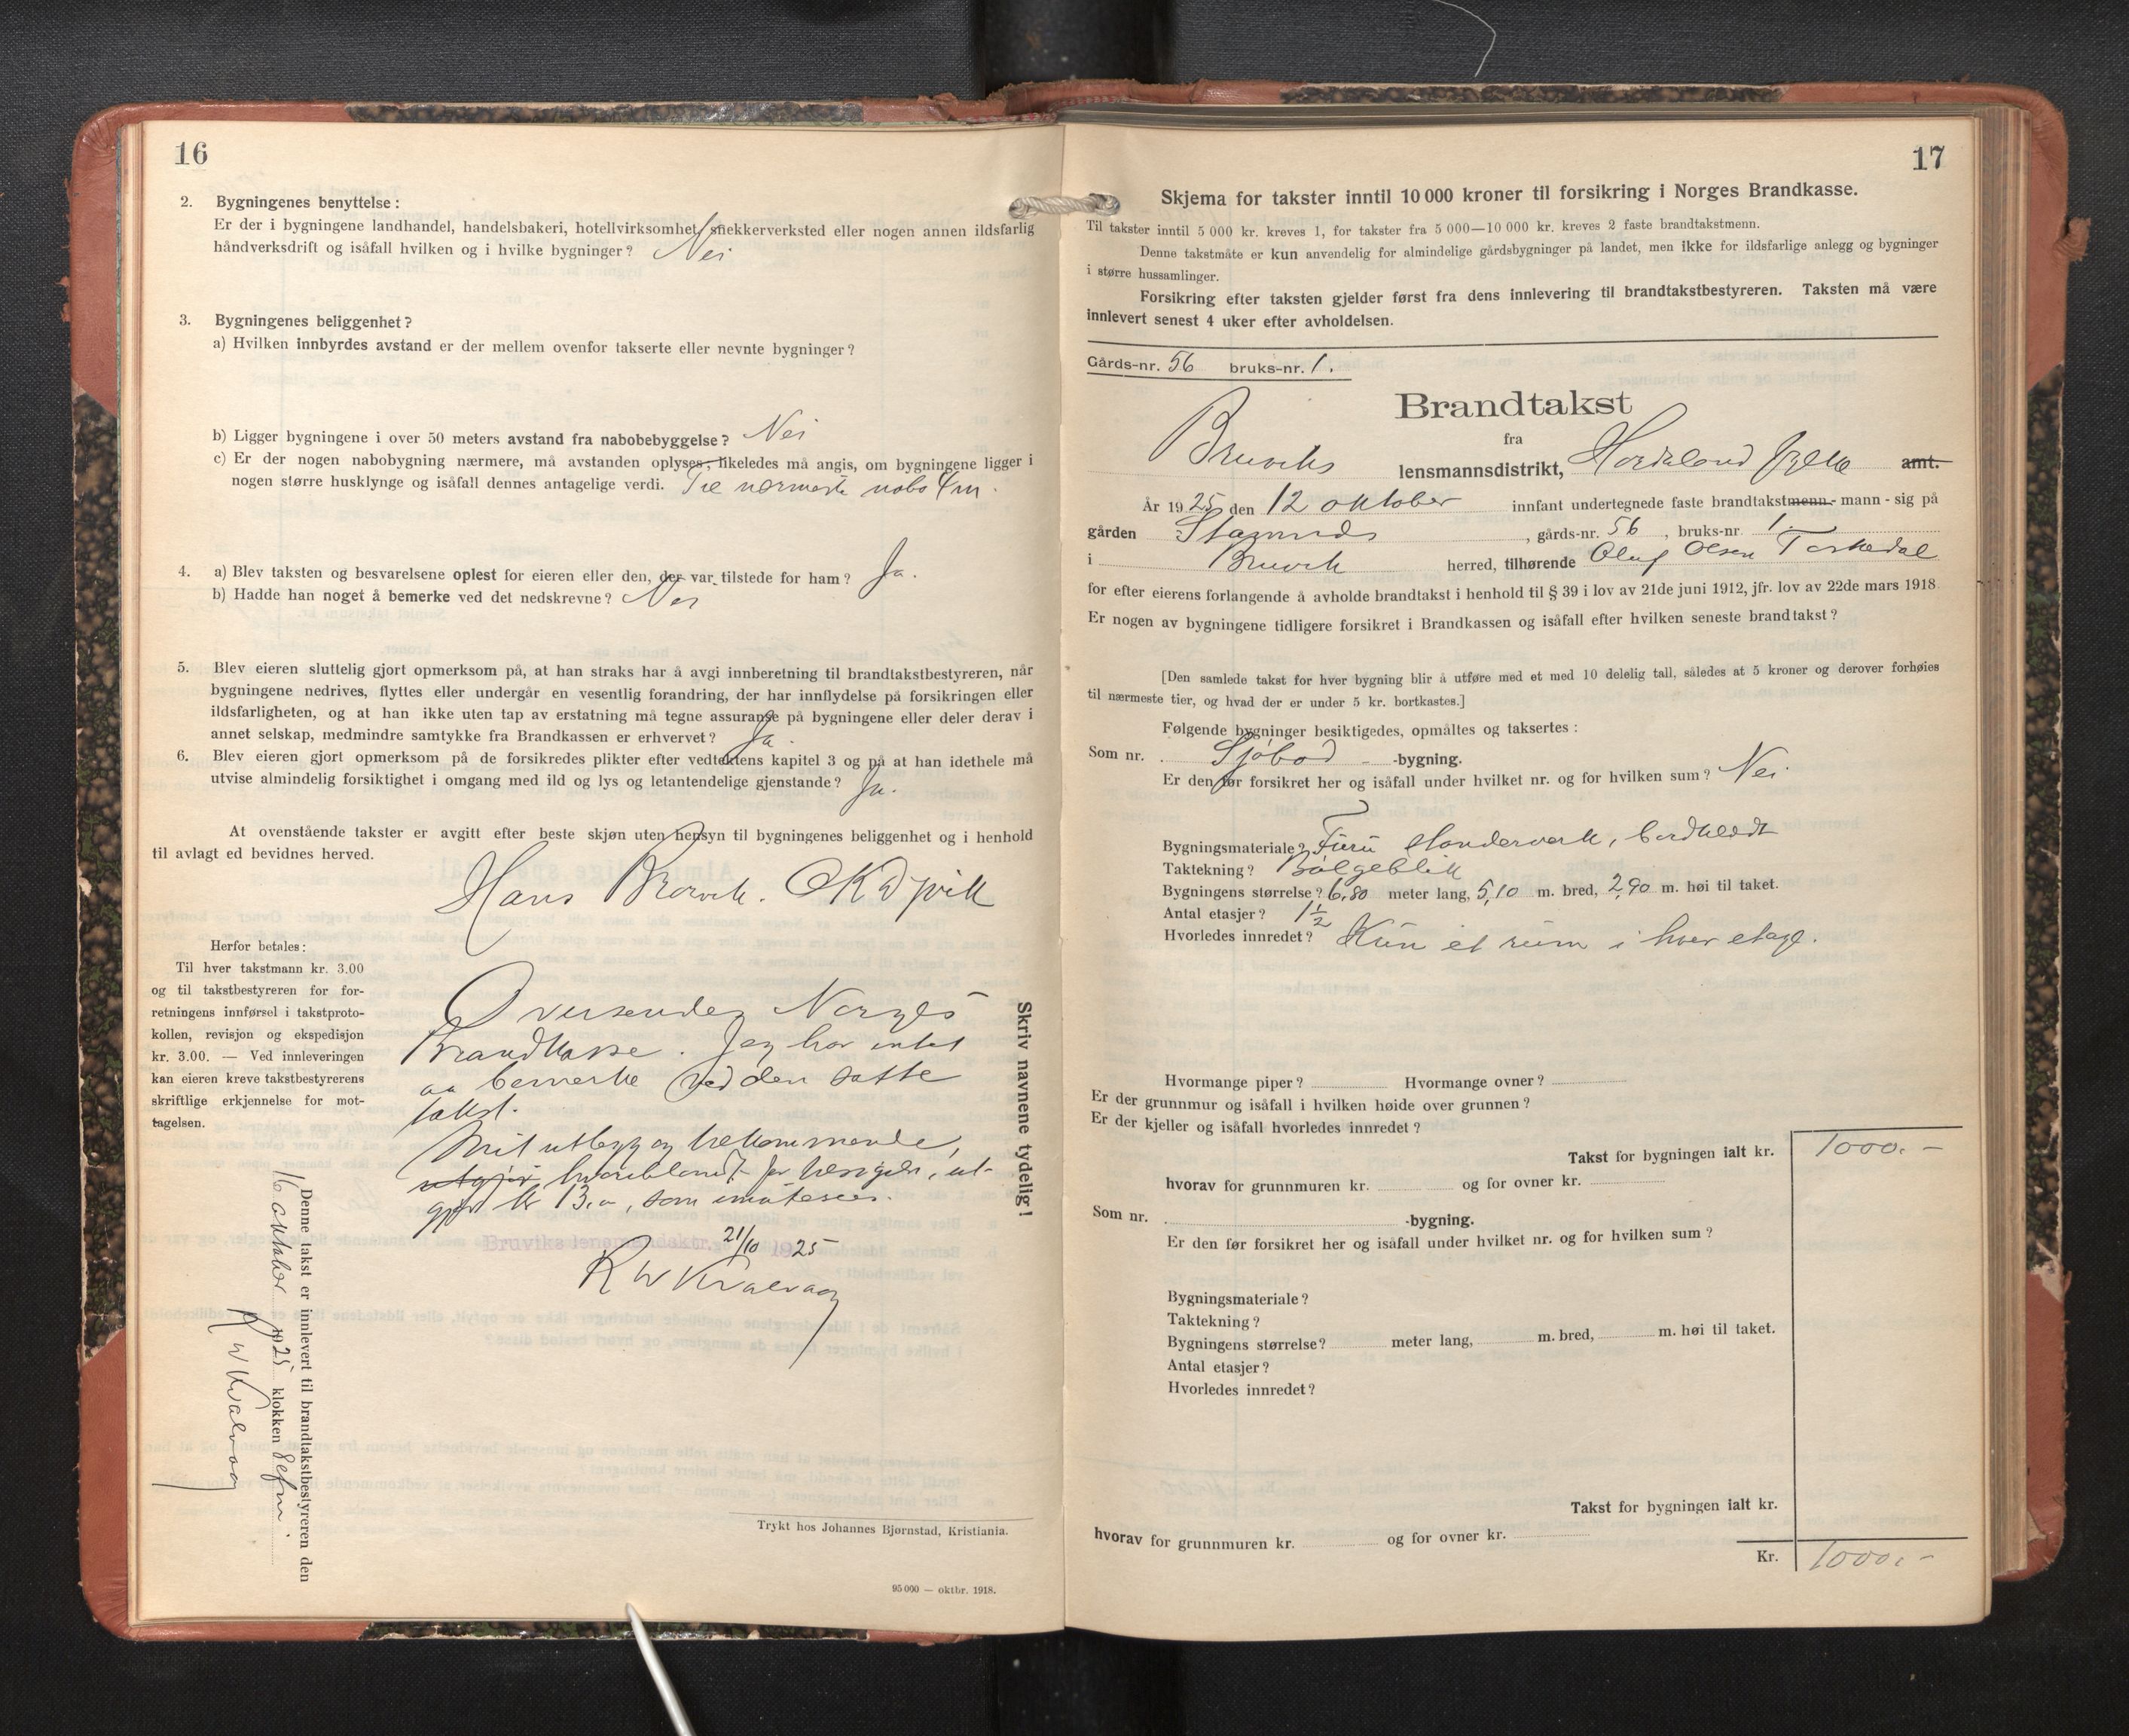 16
2. Bygningenes benyttelse:
Er der i bygningene landhandel, handelsbakeri, hotellvirksomhet, snekkerverksted eller nogen annen ildsfarlig
håndverksdrift og isåfall hvilken og i hvilke bygninger? Nei
3. Bygningenes beliggenhet?
a) Hvilken innbyrdes avstand er der mellem ovenfor takserte eller nevnte bygninger?
b) Ligger bygningene i over 50 meters avstand fra nabobebyggelse? Nei
c) Er der nogen nabobygning nærmere, må avstanden oplyses; likeledes må angis, om bygningene ligger i
nogen større husklynge og isåfall dennes antagelige verdi. Til nærmeste nabo 4 m.
4. a) Blev taksten og besvarelsene oplest for eieren eller den, der var tilstede for ham? Ja.
b) Hadde han noget å bemerke ved det nedskrevne? Nei
5. Blev eieren sluttelig gjort opmerksom på, at han straks har å avgi innberetning til brandtakstbestyreren, når
bygningene nedrives, flyttes eller undergår en vesentlig forandring, der har innflydelse på forsikringen eller
ildsfarligheten, og at han ikke uten tap av erstatning må tegne assuranse på bygningene eller deler derav i
annet selskap, medmindre samtykke fra Brandkassen er erhvervet? Ja.
6. Blev eieren gjort opmerksom på de forsikredes plikter efter vedtektens kapitel 3 og på at han idethele må
utvise almindelig forsiktighet i omgang med ild og lys og letantendelige gjenstande? Ja.
At ovenstående takster er avgitt efter beste skjøn uten hensyn til bygningenes beliggenhet og i henhold
til avlagt ed bevidnes herved.
Hans
Herfor betales:
Til hver takstmann kr. 3.00
og til takstbestyreren for for-
retningens innførsel i takstproto-
kollen, revisjon og ekspedisjon
kr. 3.00. — Ved innleveringen
kan eieren kreve takstbestyrerens
skriftlige erkjennelse for mot-
tagelsen.
Oversendes Norges
Brandkasse. Jeg har intet
aa bemerke ved den satte
takst.
Mit utlegg og tilkommende,
utgjør hvoriblandt for
gjør kr 13.00, som imøtesees.
Bruviks lensmandsktr. 21/10 1925
R W Kvalvaag
Skriv navnene tydelig!
Denne takst er innlevert til brandtakstbestyreren den
16 oktober 1925 klokken 8 efm.
R W Kvalvaag
Trykt hos Johannes Bjørnstad, Kristiania.
95 000 — oktbr. 1918.
17
Skjema for takster inntil 10 000 kroner til forsikring i Norges Brandkasse.
Til takster inntil 5 000 kr. kreves 1, for takster fra 5 000—10 000 kr. kreves 2 faste brandtakstmenn.
Denne takstmåte er kun anvendelig for almindelige gårdsbygninger på landet, men ikke for ildsfarlige anlegg og bygninger
i større hussamlinger.
Forsikring efter taksten gjelder først fra dens innlevering til brandtakstbestyreren. Taksten må være
innlevert senest 4 uker efter avholdelsen.
Gårds-nr. 56 bruks-nr. 1.
Brandtakst
fra
Bruviks lensmannsdistrikt, Hordaland fylke amt.
År 1925 den 12 oktober innfant undertegnede faste brandtakstmenn - mann - sig på
gården Stamnes, gårds-nr. 56, bruks-nr. 1.
i Bruvik herred, tilhørende Oluf Olsen Toskedal
for efter eierens forlangende å avholde brandtakst i henhold til § 39 i lov av 21de juni 1912, jfr. lov av 22de mars 1918.
Er nogen av bygningene tidligere forsikret i Brandkassen og isåfall efter hvilken seneste brandtakst?
[Den samlede takst for hver bygning blir å utføre med et med 10 delelig tall, således at 5 kroner og derover forhøies
til nærmeste tier, og hvad der er under 5 kr. bortkastes.]
Følgende bygninger besiktigedes, opmåltes og taksertes:
Som nr. Sjøbod -bygning.
Er den før forsikret her og isåfall under hvilket nr. og for hvilken sum? Nei.
Bygningsmateriale? Furu standerverk, bordklædt
Taktekning? Bølgeblik
Bygningens størrelse? 6,80 meter lang, 5,10 m. bred, 2,90 m. høi til taket.
Antal etasjer? 1 1/2
Hvorledes innredet? Kun et rum i hver etage.
Hvormange piper? Hvormange ovner?
Er der grunnmur og isåfall i hvilken høide over grunnen?
Er der kjeller og isåfall hvorledes innredet?
Takst for bygningen ialt kr. 1000.-
hvorav for grunnmuren kr. og for ovner kr.
Som nr. -bygning.
Er den før forsikret her og isåfall under hvilket nr. og for hvilken sum?
Bygningsmateriale?
Taktekning?
Bygningens størrelse? meter lang, m. bred, m. høi til taket.
Antal etasjer?
Hvorledes innredet?
Takst for bygningen ialt kr.
hvorav for grunnmuren kr. og for ovner kr.
Kr. 1000.-